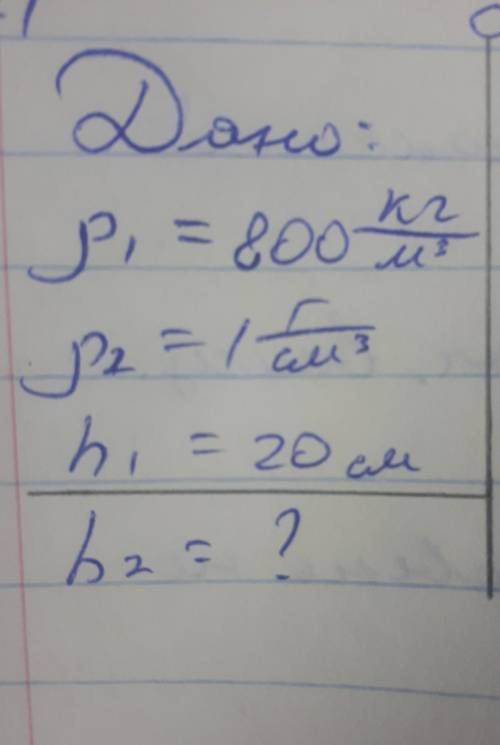 Дано:
ρ₁ = 800 кг/м³
ρ₂ = 1 г/см³
h₁ = 20 см
h₂ = ?